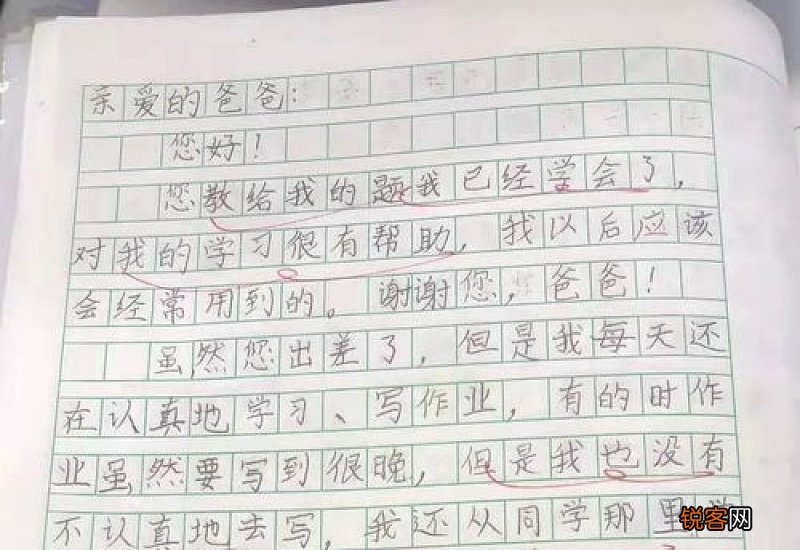 亲爱的爸爸：
您好！
您教给我的题我已经学会了，
对我的学习很有帮助，我以后应该
会经常用到的。谢谢您，爸爸！
虽然您出差了，但是我每天还
在认真地学习、写作业，有的时作
业虽然要写到很晚，但是我也没有
不认真地去写，我还从同学那里学
锐客网